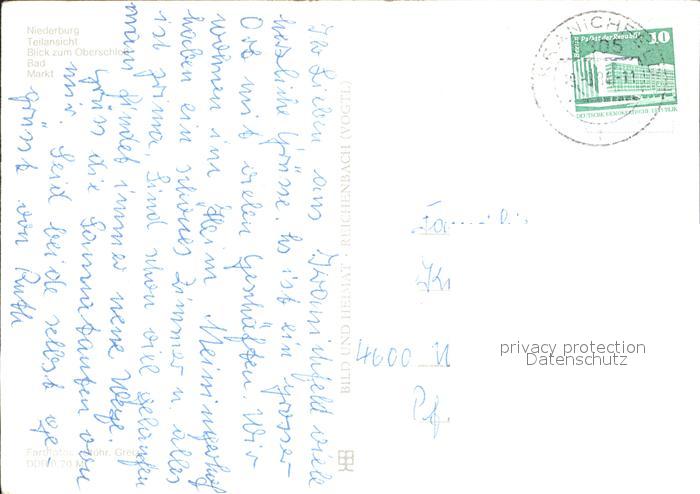 Niederburg
Teilansicht
Blick zum Oberschloß
Bad
Markt
Ihr Lieben aus Kranichfeld viele
herzliche Grüsse. Es ist ein grosser
Ort mit vielen Geschäften. Wir
wohnen im Heim Meiningerhof
haben ein schönes Zimmer u. alles
ist prima. Sind schon viel gelaufen
man findet immer neue Wege.
Grüss die Samariatanten von
mir. Seid beide selbst ge-
grüsst von Ruth
BILD UND HEIMAT · REICHENBACH (VOGTL)
Farbfotos:
DDR 0,20 M
KRANICHFELD
Berlin Palast der Republik 10
DEUTSCHE DEMOKRATISCHE REPUBLIK
4600 W
privacy protection
Datenschutz